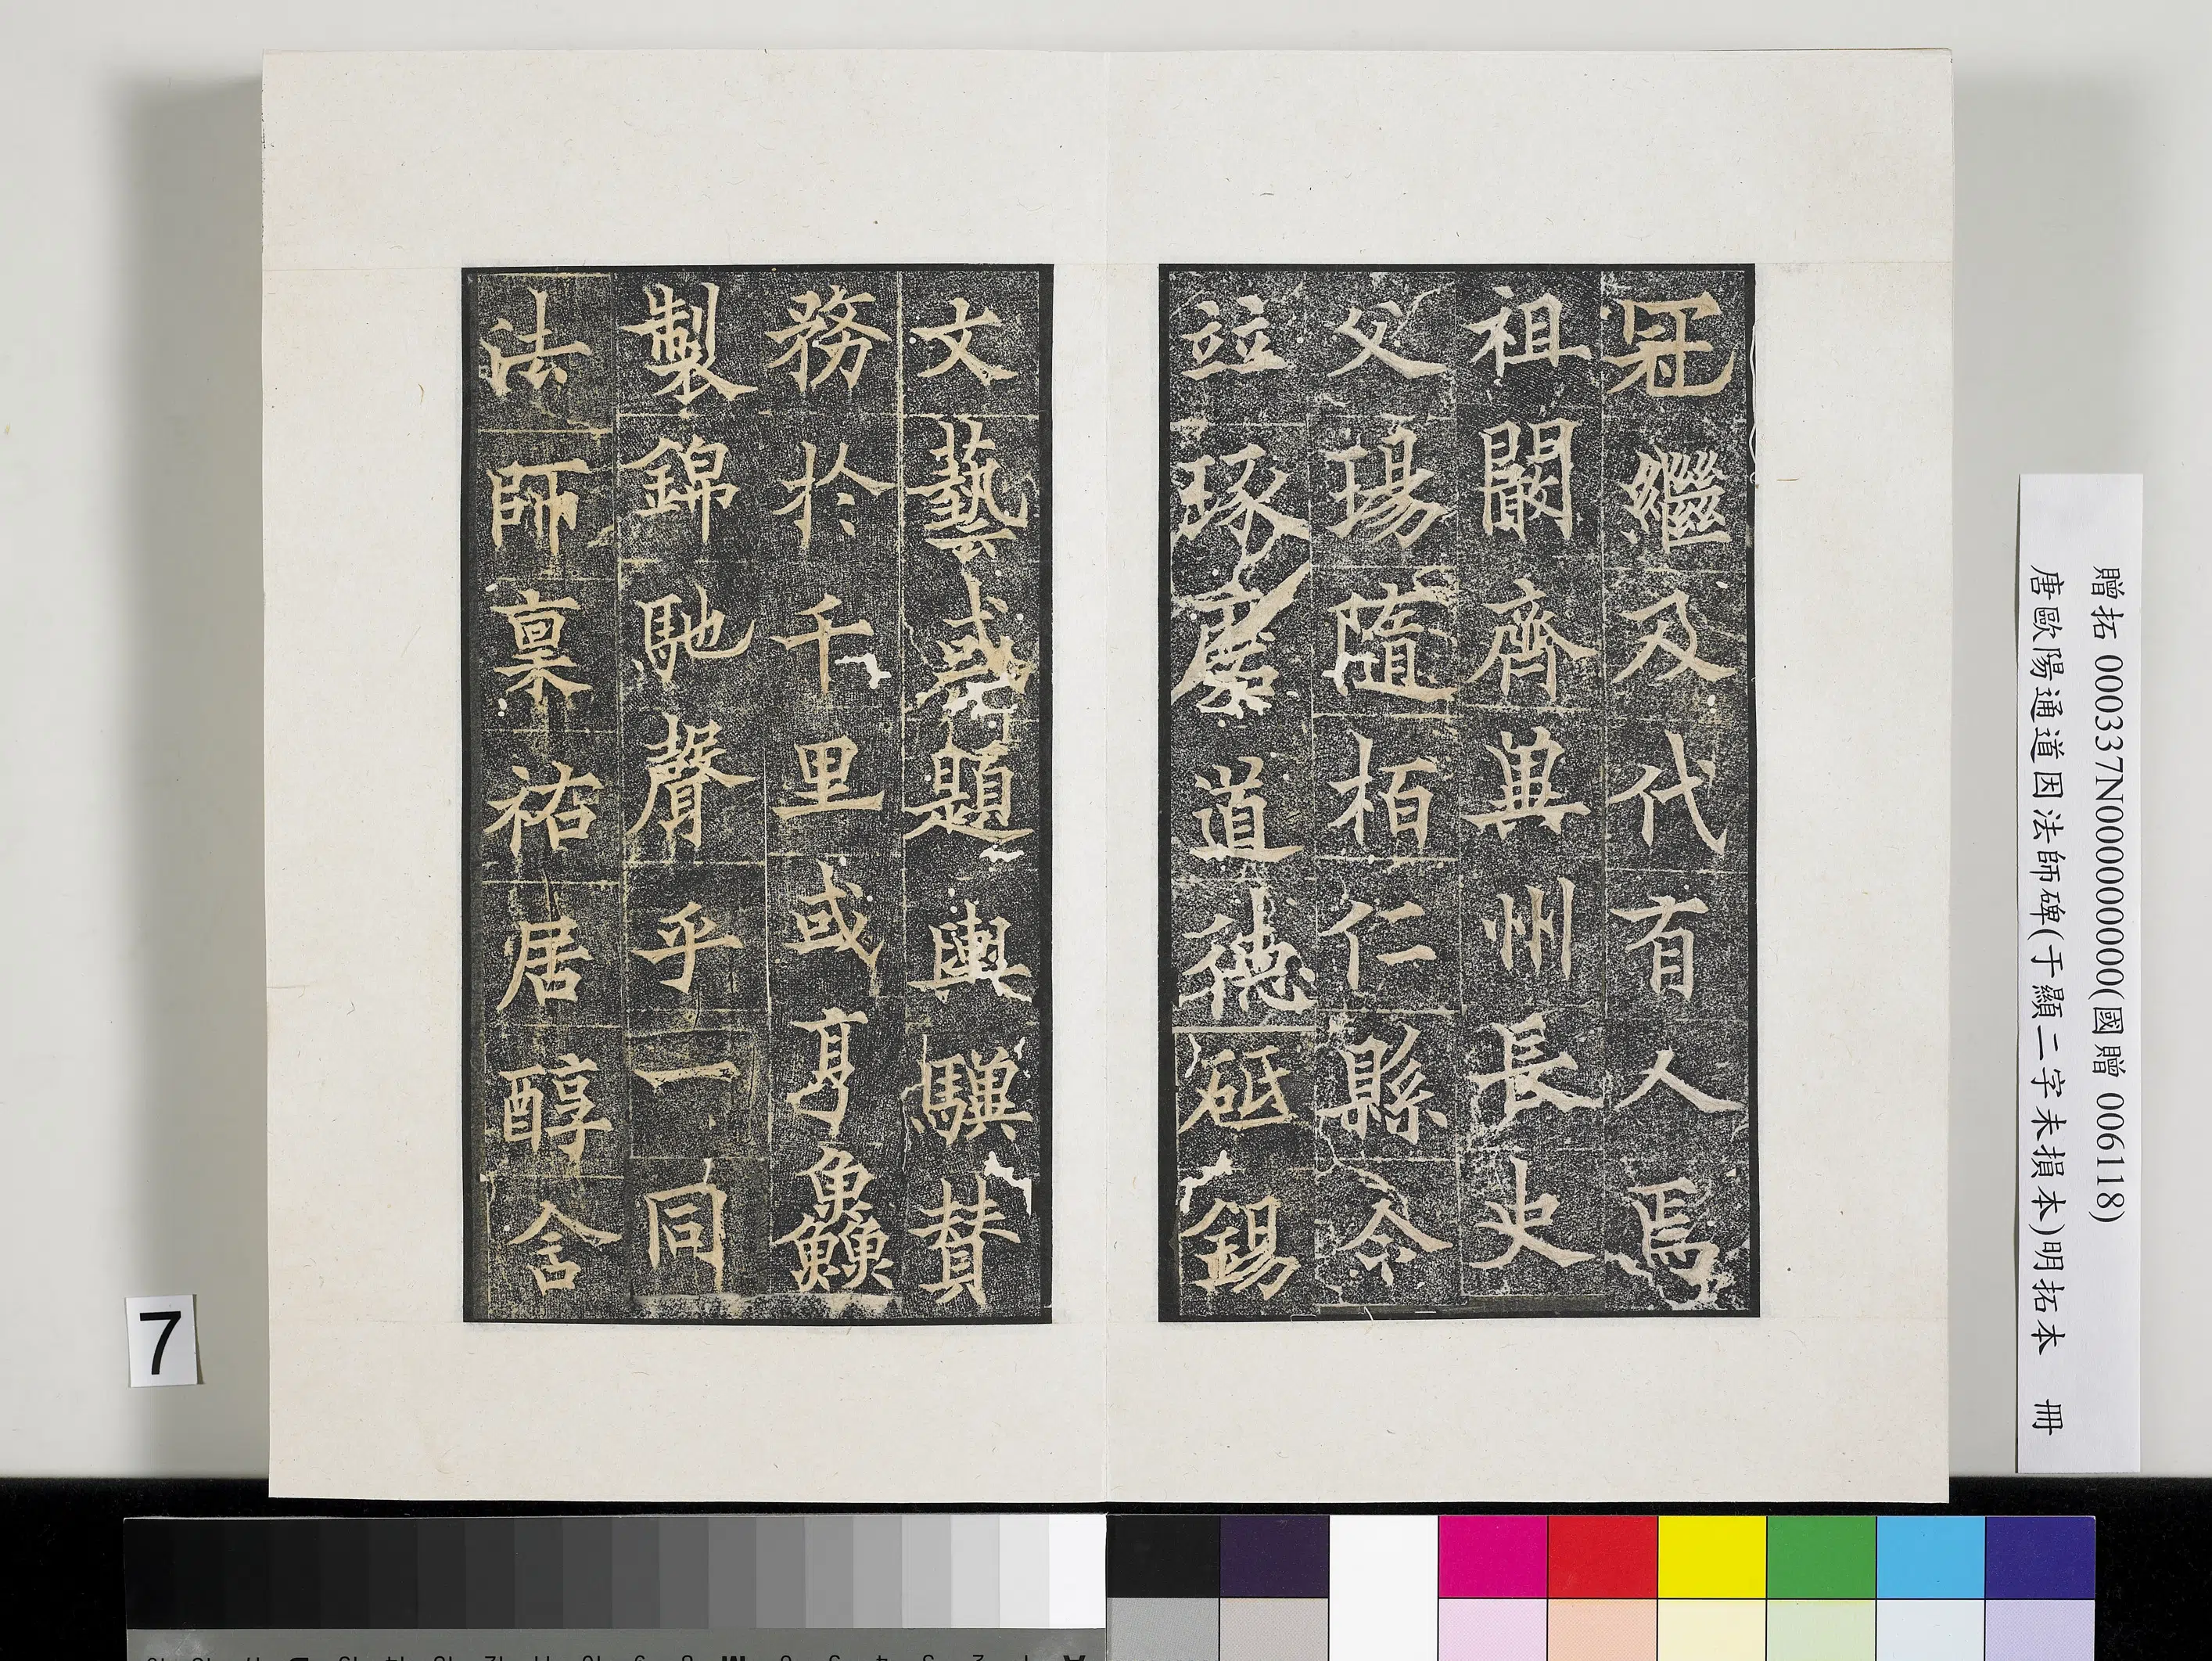 冠繼及代有人焉
祖闞齊興州長史
父瑒隨栢仁縣令
並琢磨道德砥錫
文藝或題輿驥賛
務於千里或亨鱻
製錦馳聲乎一同
法師稟祐居醇含
贈拓 000337N000000000(國贈 006118)
唐歐陽通道因法師碑(于顯二字未損本)明拓本 冊
7